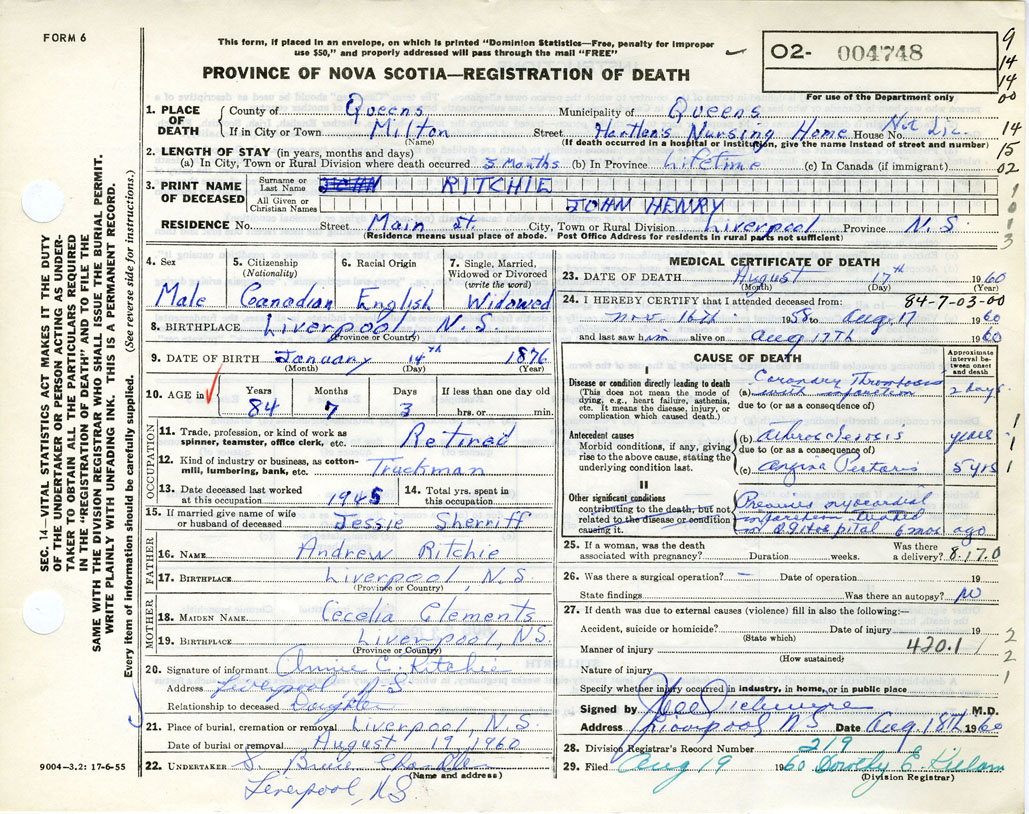 FORM 6
This form, if placed in an envelope, on which is printed "Dominion Statistics—Free, penalty for improper
use $50," and properly addressed will pass through the mail "FREE"
PROVINCE OF NOVA SCOTIA—REGISTRATION OF DEATH
02- 004748
For use of the Department only
9
14
14
00
14
15
02
1
0
1
3
SEC. 14—VITAL STATISTICS ACT MAKES IT THE DUTY
OF THE UNDERTAKER OR PERSON ACTING AS UNDER-
TAKER TO OBTAIN ALL THE PARTICULARS REQUIRED
IN THE "REGISTRATION OF DEATH" AND TO FILE THE
SAME WITH THE DIVISION REGISTRAR WHO SHALL ISSUE THE BURIAL PERMIT.
WRITE PLAINLY WITH UNFADING INK. THIS IS A PERMANENT RECORD.
Every item of information should be carefully supplied. (See reverse side for instructions.)
1. PLACE OF DEATH
County of Queens Municipality of Queens
If in City or Town Milton Street Nursing Home House No. Not Lic.
(Name) (If death occurred in a hospital or institution, give the name instead of street and number)
2. LENGTH OF STAY (in years, months and days)
(a) In City, Town or Rural Division where death occurred 3 Months (b) In Province Lifetime (c) In Canada (if immigrant)
3. PRINT NAME OF DECEASED
Surname or Last Name JOHN RITCHIE
All Given or Christian Names JOHN HENRY
RESIDENCE No. Street Main St. City, Town or Rural Division Liverpool Province N S
(Residence means usual place of abode. Post Office Address for residents in rural parts not sufficient)
4. Sex 5. Citizenship (Nationality) 6. Racial Origin 7. Single, Married, Widowed or Divorced (write the word)
Male Canadian English Widowed
8. BIRTHPLACE Liverpool, N.S.
(Province or Country)
9. DATE OF BIRTH January 14th 1876
(Month) (Day) (Year)
10. AGE in Years Months Days If less than one day old
84 7 3 hrs. or min.
OCCUPATION
11. Trade, profession, or kind of work as spinner, teamster, office clerk, etc. Retired
12. Kind of industry or business, as cotton-mill, lumbering, bank, etc. Truckman
13. Date deceased last worked at this occupation 1945 14. Total yrs. spent in this occupation
15. If married give name of wife or husband of deceased Jessie Sherriff
FATHER
16. NAME Andrew Ritchie
17. BIRTHPLACE Liverpool, N.S.
(Province or Country)
MOTHER
18. MAIDEN NAME Cecelia Clements
19. BIRTHPLACE Liverpool, N.S.
(Province or Country)
20. Signature of informant Annie C. Ritchie
Address Liverpool, N.S.
Relationship to deceased Daughter
21. Place of burial, cremation or removal Liverpool, N.S.
Date of burial or removal August 19, 1960
22. UNDERTAKER S. Chandler
(Name and address)
Liverpool, N.S.
9004—3.2: 17-6-55
MEDICAL CERTIFICATE OF DEATH
23. DATE OF DEATH August 17th 1960
(Month) (Day) (Year)
24. I HEREBY CERTIFY that I attended deceased from: 84-7-03-00
Nov. 16th 1958 to Aug. 17 1960
and last saw him alive on Aug 17th 1960
CAUSE OF DEATH
Approximate interval between onset and death
I
Disease or condition directly leading to death
(This does not mean the mode of dying, e.g., heart failure, asthenia, etc. It means the disease, injury, or complication which caused death.)
(a) Coronary Thrombosis
with infarction 2 days
due to (or as a consequence of)
Antecedent causes
Morbid conditions, if any, giving rise to the above cause, stating the underlying condition last.
(b) years
due to (or as a consequence of)
(c) Angina Pectoris 5 yrs
1
1
1
II
Other significant conditions
contributing to the death, but not related to the disease or condition causing it.
Previous myocardial
infarction treated
in Hospital 6 mos ago
25. If a woman, was the death associated with pregnancy? Duration weeks. Was there a delivery? 8.17.0
26. Was there a surgical operation? — Date of operation 19
State findings Was there an autopsy? No
27. If death was due to external causes (violence) fill in also the following:—
Accident, suicide or homicide? Date of injury 19
(State which)
Manner of injury 420.1
(How sustained)
Nature of injury
2
2
1
Specify whether injury occurred in industry, in home, or in public place
Signed by M.D.
Address Liverpool NS Date Aug 18th 1960
28. Division Registrar's Record Number 219
29. Filed Aug 19 1960 Dorothy E.
(Division Registrar)